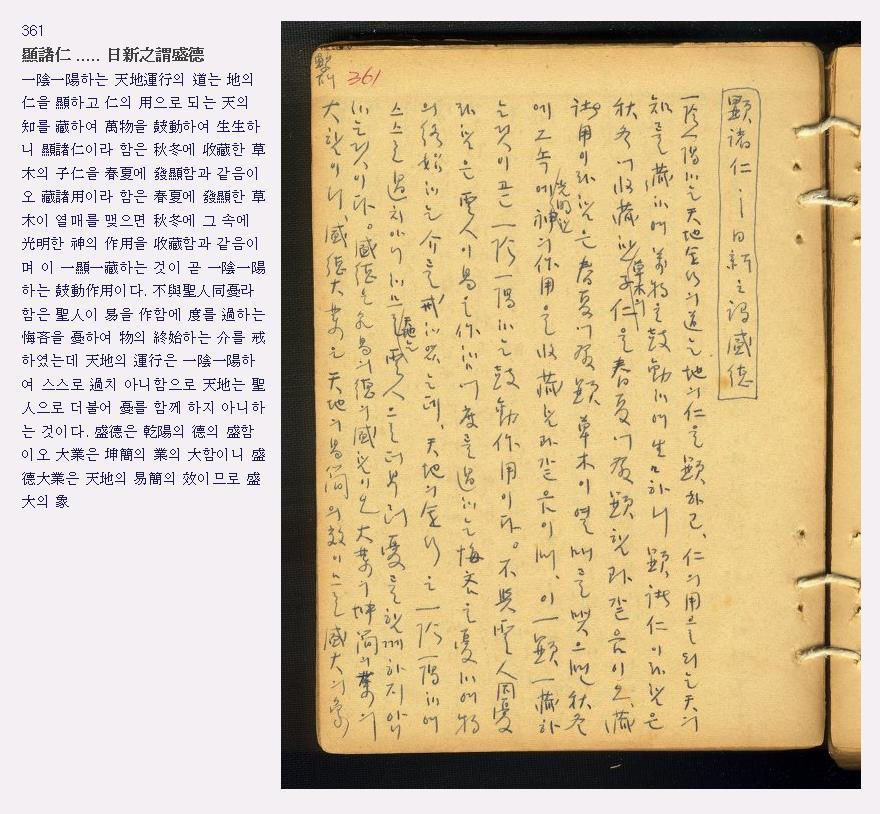 361
顯諸仁 ..... 日新之謂盛德
一陰一陽하는 天地運行의 道는 地의
仁을 顯하고 仁의 用으로 되는 天의
知를 藏하여 萬物을 鼓動하여 生生하
니 顯諸仁이라 함은 秋冬에 收藏한 草
木의 子仁을 春夏에 發顯함과 같음이
오 藏諸用이라 함은 春夏에 發顯한 草
木이 열매를 맺으면 秋冬에 그 속에
光明한 神의 作用을 收藏함과 같음이
며 이 一顯一藏하는 것이 곧 一陰一陽
하는 鼓動作用이다. 不與聖人同憂라
함은 聖人이 易을 作함에 度를 過하는
悔吝을 憂하여 物의 終始하는 介를 戒
하였는데 天地의 運行은 一陰一陽하
여 스스로 過치 아니함으로 天地는 聖
人으로 더불어 憂를 함께 하지 아니하
는 것이다. 盛德은 乾陽의 德의 盛함
이오 大業은 坤簡의 業의 大함이니 盛
德大業은 天地의 易簡의 效이므로 盛
大의 象
361
顯諸仁 ... 日新之謂盛德
一陰一陽하는 天地運行의 道는 地의 仁을 顯하고、仁의 用으로 되는 天의
知를 藏하여 萬物을 鼓動하여 生生하니 顯諸仁이라 함은
秋冬에 收藏한 草木의 子仁을 春夏에 發顯함과 같음이오、藏
諸用이라 함은 春夏에 發顯한 草木이 열매를 맺으면 秋冬
에 그 속에 光明한 神의 作用을 收藏함과 같음이며、이 一顯一藏하
는 것이 곧 一陰一陽하는 鼓動作用이다。不與聖人同憂
라 함은 聖人이 易을 作함에 度를 過하는 悔吝을 憂하여 物
의 終始하는 介를 戒하였는데、天地의 運行은 一陰一陽하여
스스로 過치 아니함으로 天地는 聖人으로 더부러 憂를 함께 하지 아니
하는 것이다。盛德은 乾易의 德의 盛함이오 大業은 坤簡의 業의
大함이니、盛德大業은 天地의 易簡의 效이므로 盛大의 象